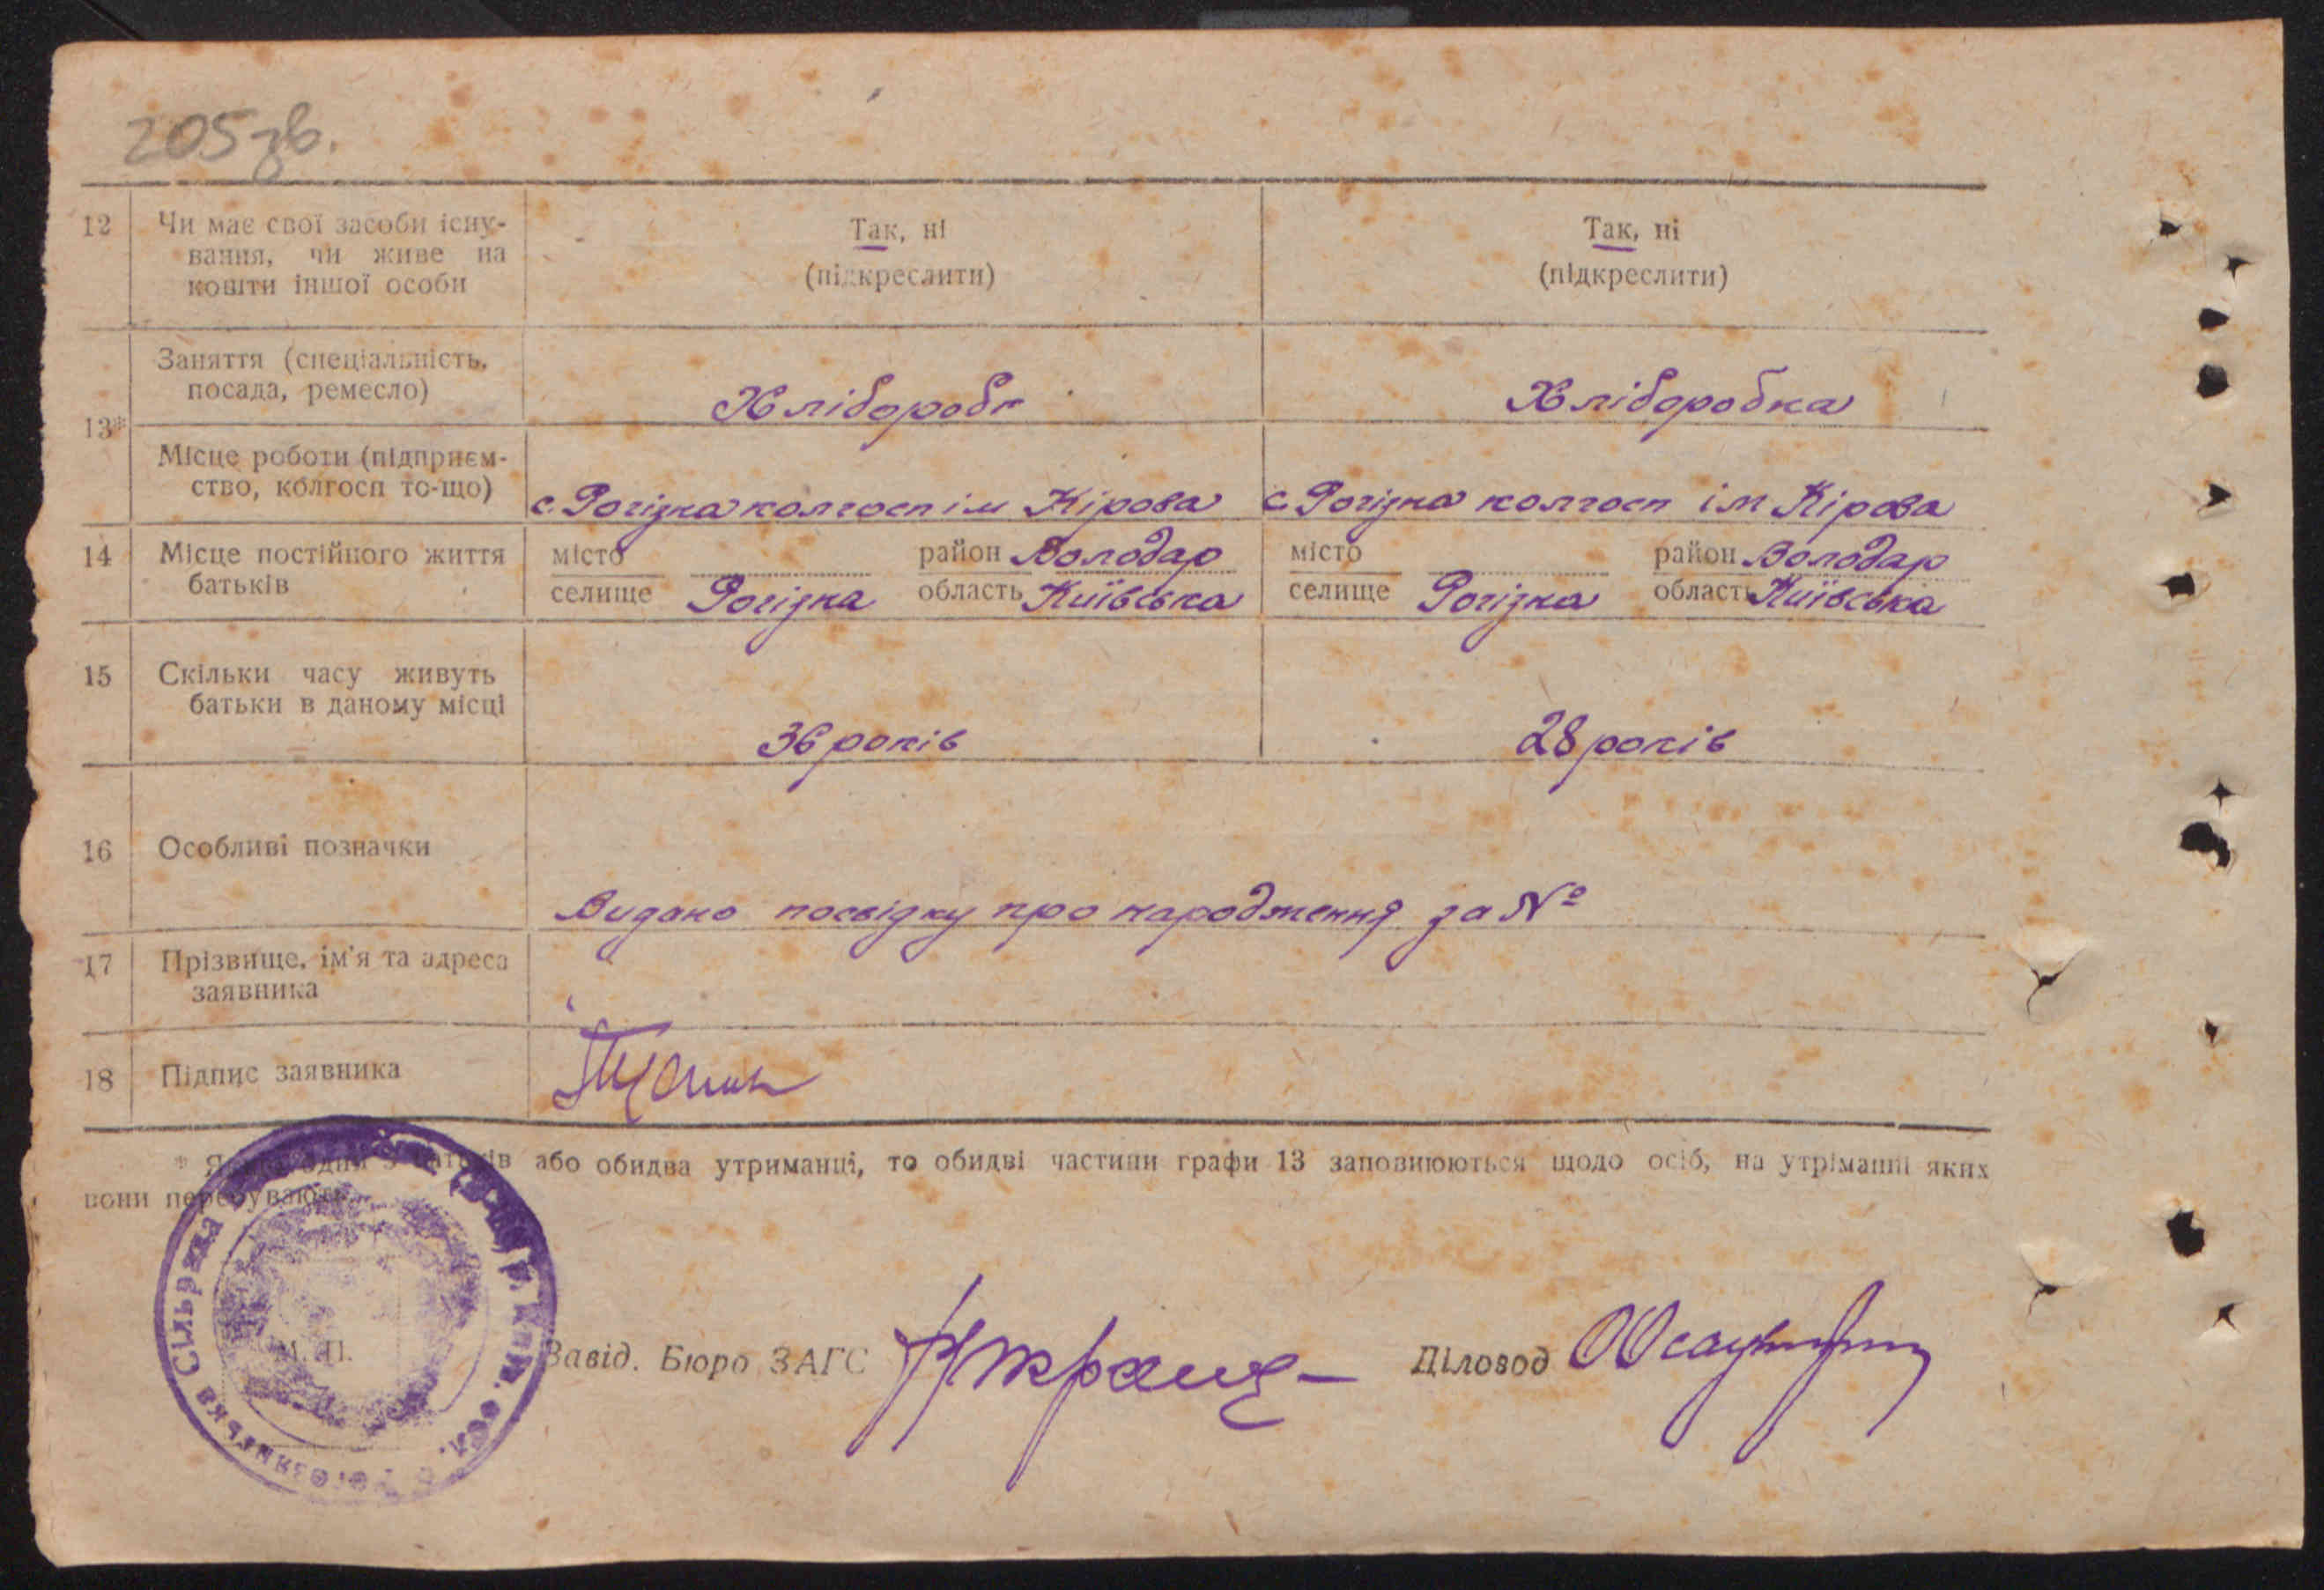 205зв.
12 Чи має свої засоби існу-
вання, чи живе на
кошти іншої особи
Так, ні
(підкреслити)
Так, ні
(підкреслити)
13*
Заняття (спеціальність,
посада, ремесло)
Хлібороб
Хліборобка
Місце роботи (підприєм-
ство, колгосп то-що)
с. Рогізна колгосп ім Кірова
с. Рогізна колгосп ім Кірова
14 Місце постійного життя
батьків
місто
селище Рогізна
район Володар
область Київська
місто
селище Рогізна
район Володар
область Київська
15 Скільки часу живуть
батьки в даному місці
36 років
28 років
16 Особливі позначки
Видано посвідку про народження за №
17 Прізвище, ім'я та адреса
заявника
18 Підпис заявника
* Якщо один з батьків або обидва утриманці, то обидві частини графи 13 заповнюються щодо осіб, на утріманні яких
вони перебувають.
Сільрада
М. П.
Завід. Бюро ЗАГС
Діловод